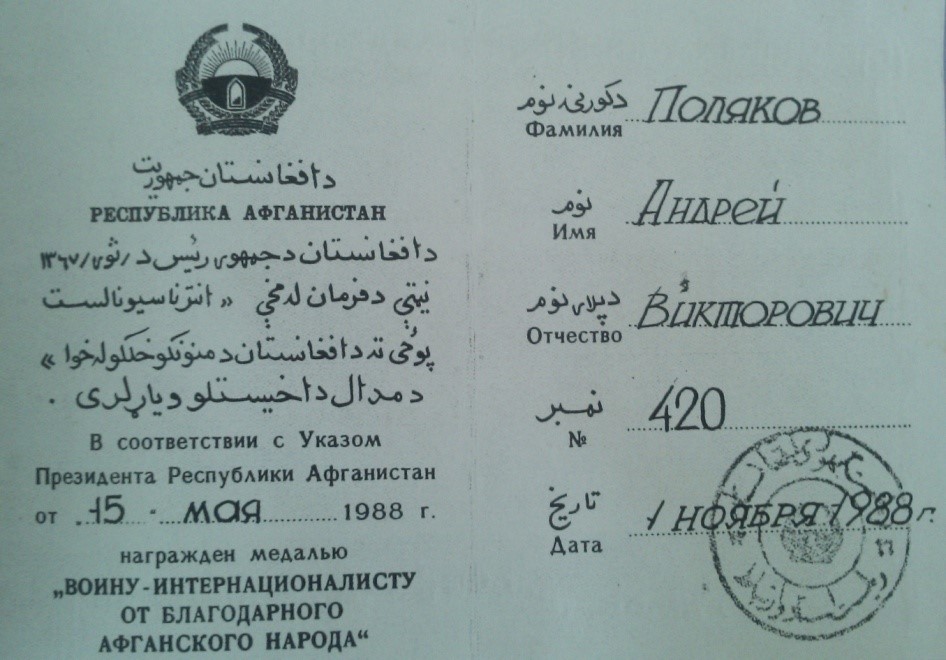 دافغانستان جمهوريت
РЕСПУБЛИКА АФГАНИСТАН
دافغانستان دجمهوری رئیس د /ثور/ ۱۳۶۷
نیټې دفرمان له مخې « انترناسیونالست
پوځی ته دافغانستان دمننونکو خلکو له خوا »
دمدال داخیستلو ویاړ لری .
В соответствии с Указом
Президента Республики Афганистан
от 15 мая 1988 г.
награжден медалью
„ВОИНУ-ИНТЕРНАЦИОНАЛИСТУ
ОТ БЛАГОДАРНОГО
АФГАНСКОГО НАРОДА“
دکورنۍ نوم
Поляков
Фамилия
نوم
Андрей
Имя
دپلار نوم
Викторович
Отчество
نمبر
420
№
تاریخ
1 ноября 1988 г.
Дата